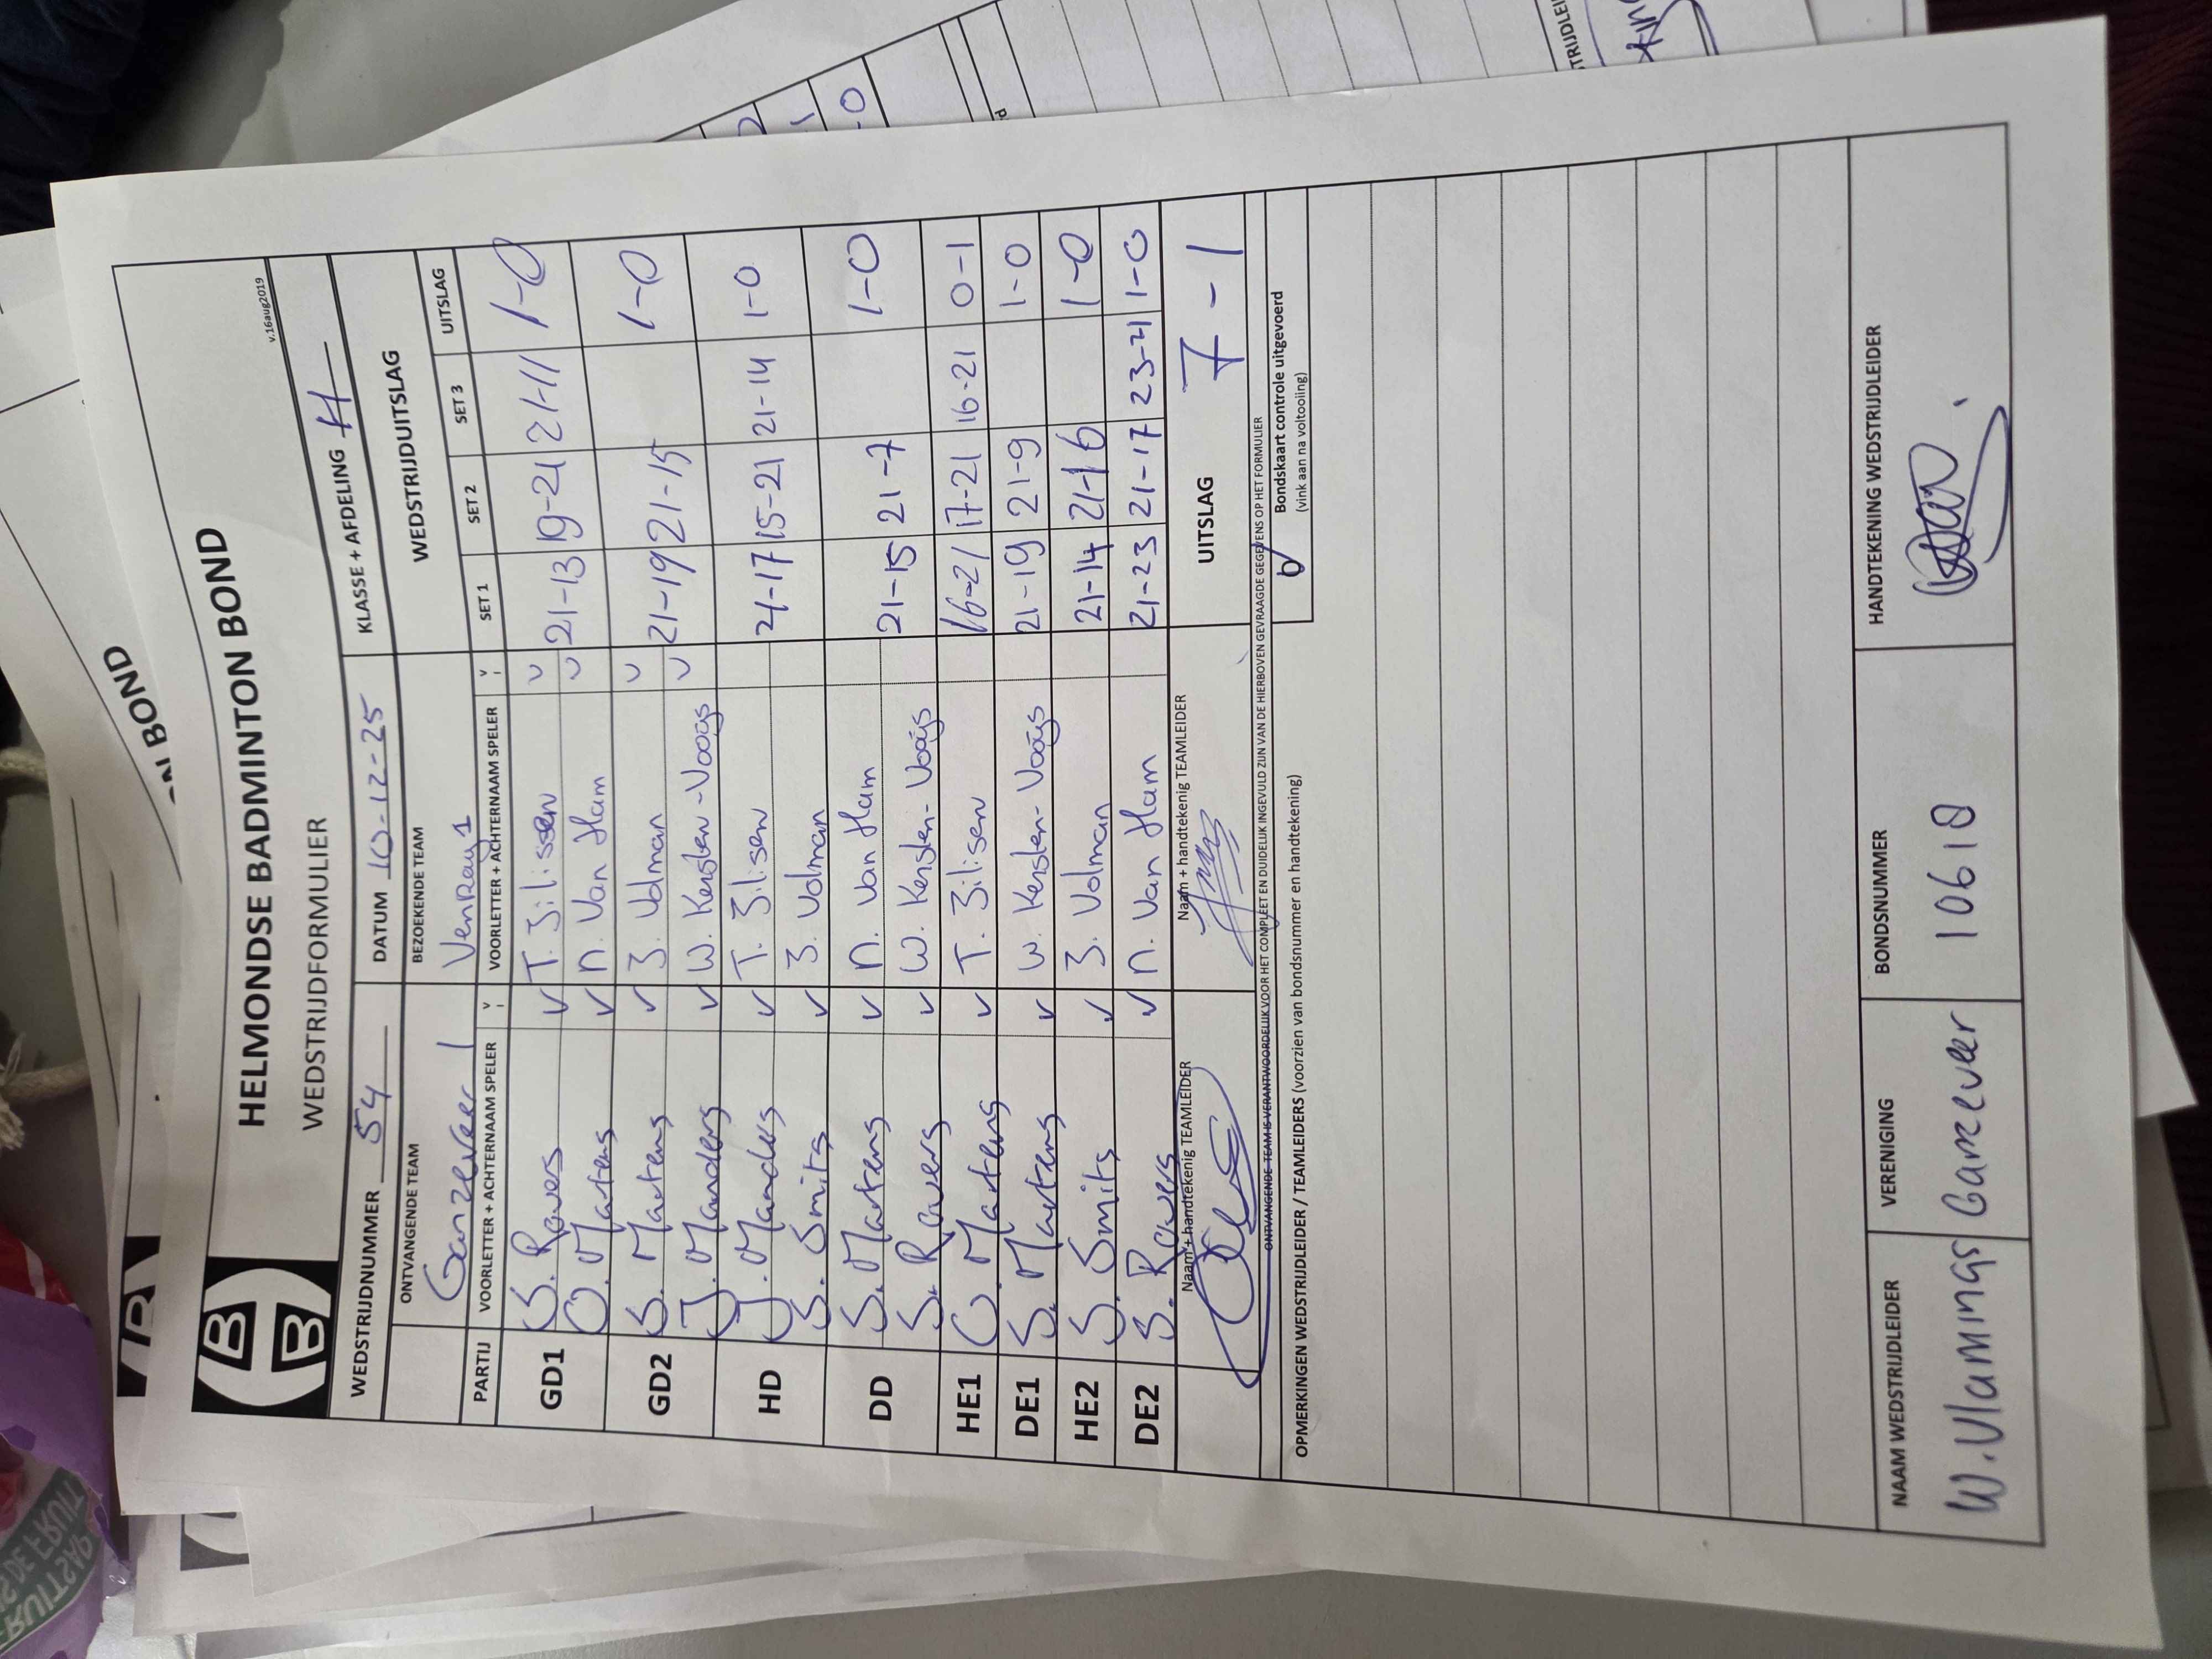 HELMONDSE BADMINTON BOND
v.16aug2019
WEDSTRIJDFORMULIER
WEDSTRIJDNUMMER 54 DATUM 10-12-25 KLASSE + AFDELING H
ONTVANGENDE TEAM BEZOEKENDE TEAM WEDSTRIJDUITSLAG
Ganzeveer 1 VenRay 1
PARTIJ VOORLETTER + ACHTERNAAM SPELER V VOORLETTER + ACHTERNAAM SPELER V SET 1 SET 2 SET 3 UITSLAG
GD1 S. Rovers v T. Jilissen v 21-13 19-21 21-11 1-0
O. Martens v N. Van Ham v
GD2 S. Martens v J. Volman v 21-19 21-15 1-0
J. Manders v W. Kersten-Vooijs v
HD J. Manders v T. Jilisen 21-17 15-21 21-14 1-0
S. Smits v J. Volman
DD S. Martens v N. Van Ham 21-15 21-7 1-0
S. Rovers v W. Kersten-Vooijs
HE1 O. Martens v T. Jilisen 16-21 17-21 16-21 0-1
DE1 S. Martens v W. Kersten-Vooijs 21-19 21-9 1-0
HE2 S. Smits v J. Volman 21-14 21-16 1-0
DE2 S. Rovers v N. Van Ham 21-23 21-17 23-21 1-0
Naam + handtekenig TEAMLEIDER Naam + handtekenig TEAMLEIDER UITSLAG 7-1
ONTVANGENDE TEAM IS VERANTWOORDELIJK VOOR HET COMPLEET EN DUIDELIJK INGEVULD ZIJN VAN DE HIERBOVEN GEVRAAGDE GEGEVENS OP HET FORMULIER
Bondskaart controle uitgevoerd
(vink aan na voltooiing)
OPMERKINGEN WEDSTRIJDLEIDER / TEAMLEIDERS (voorzien van bondsnummer en handtekening)
NAAM WEDSTRIJDLEIDER VERENIGING BONDSNUMMER HANDTEKENING WEDSTRIJDLEIDER
W. Vlamings Ganzeveer 10610
BOND
FRUIT